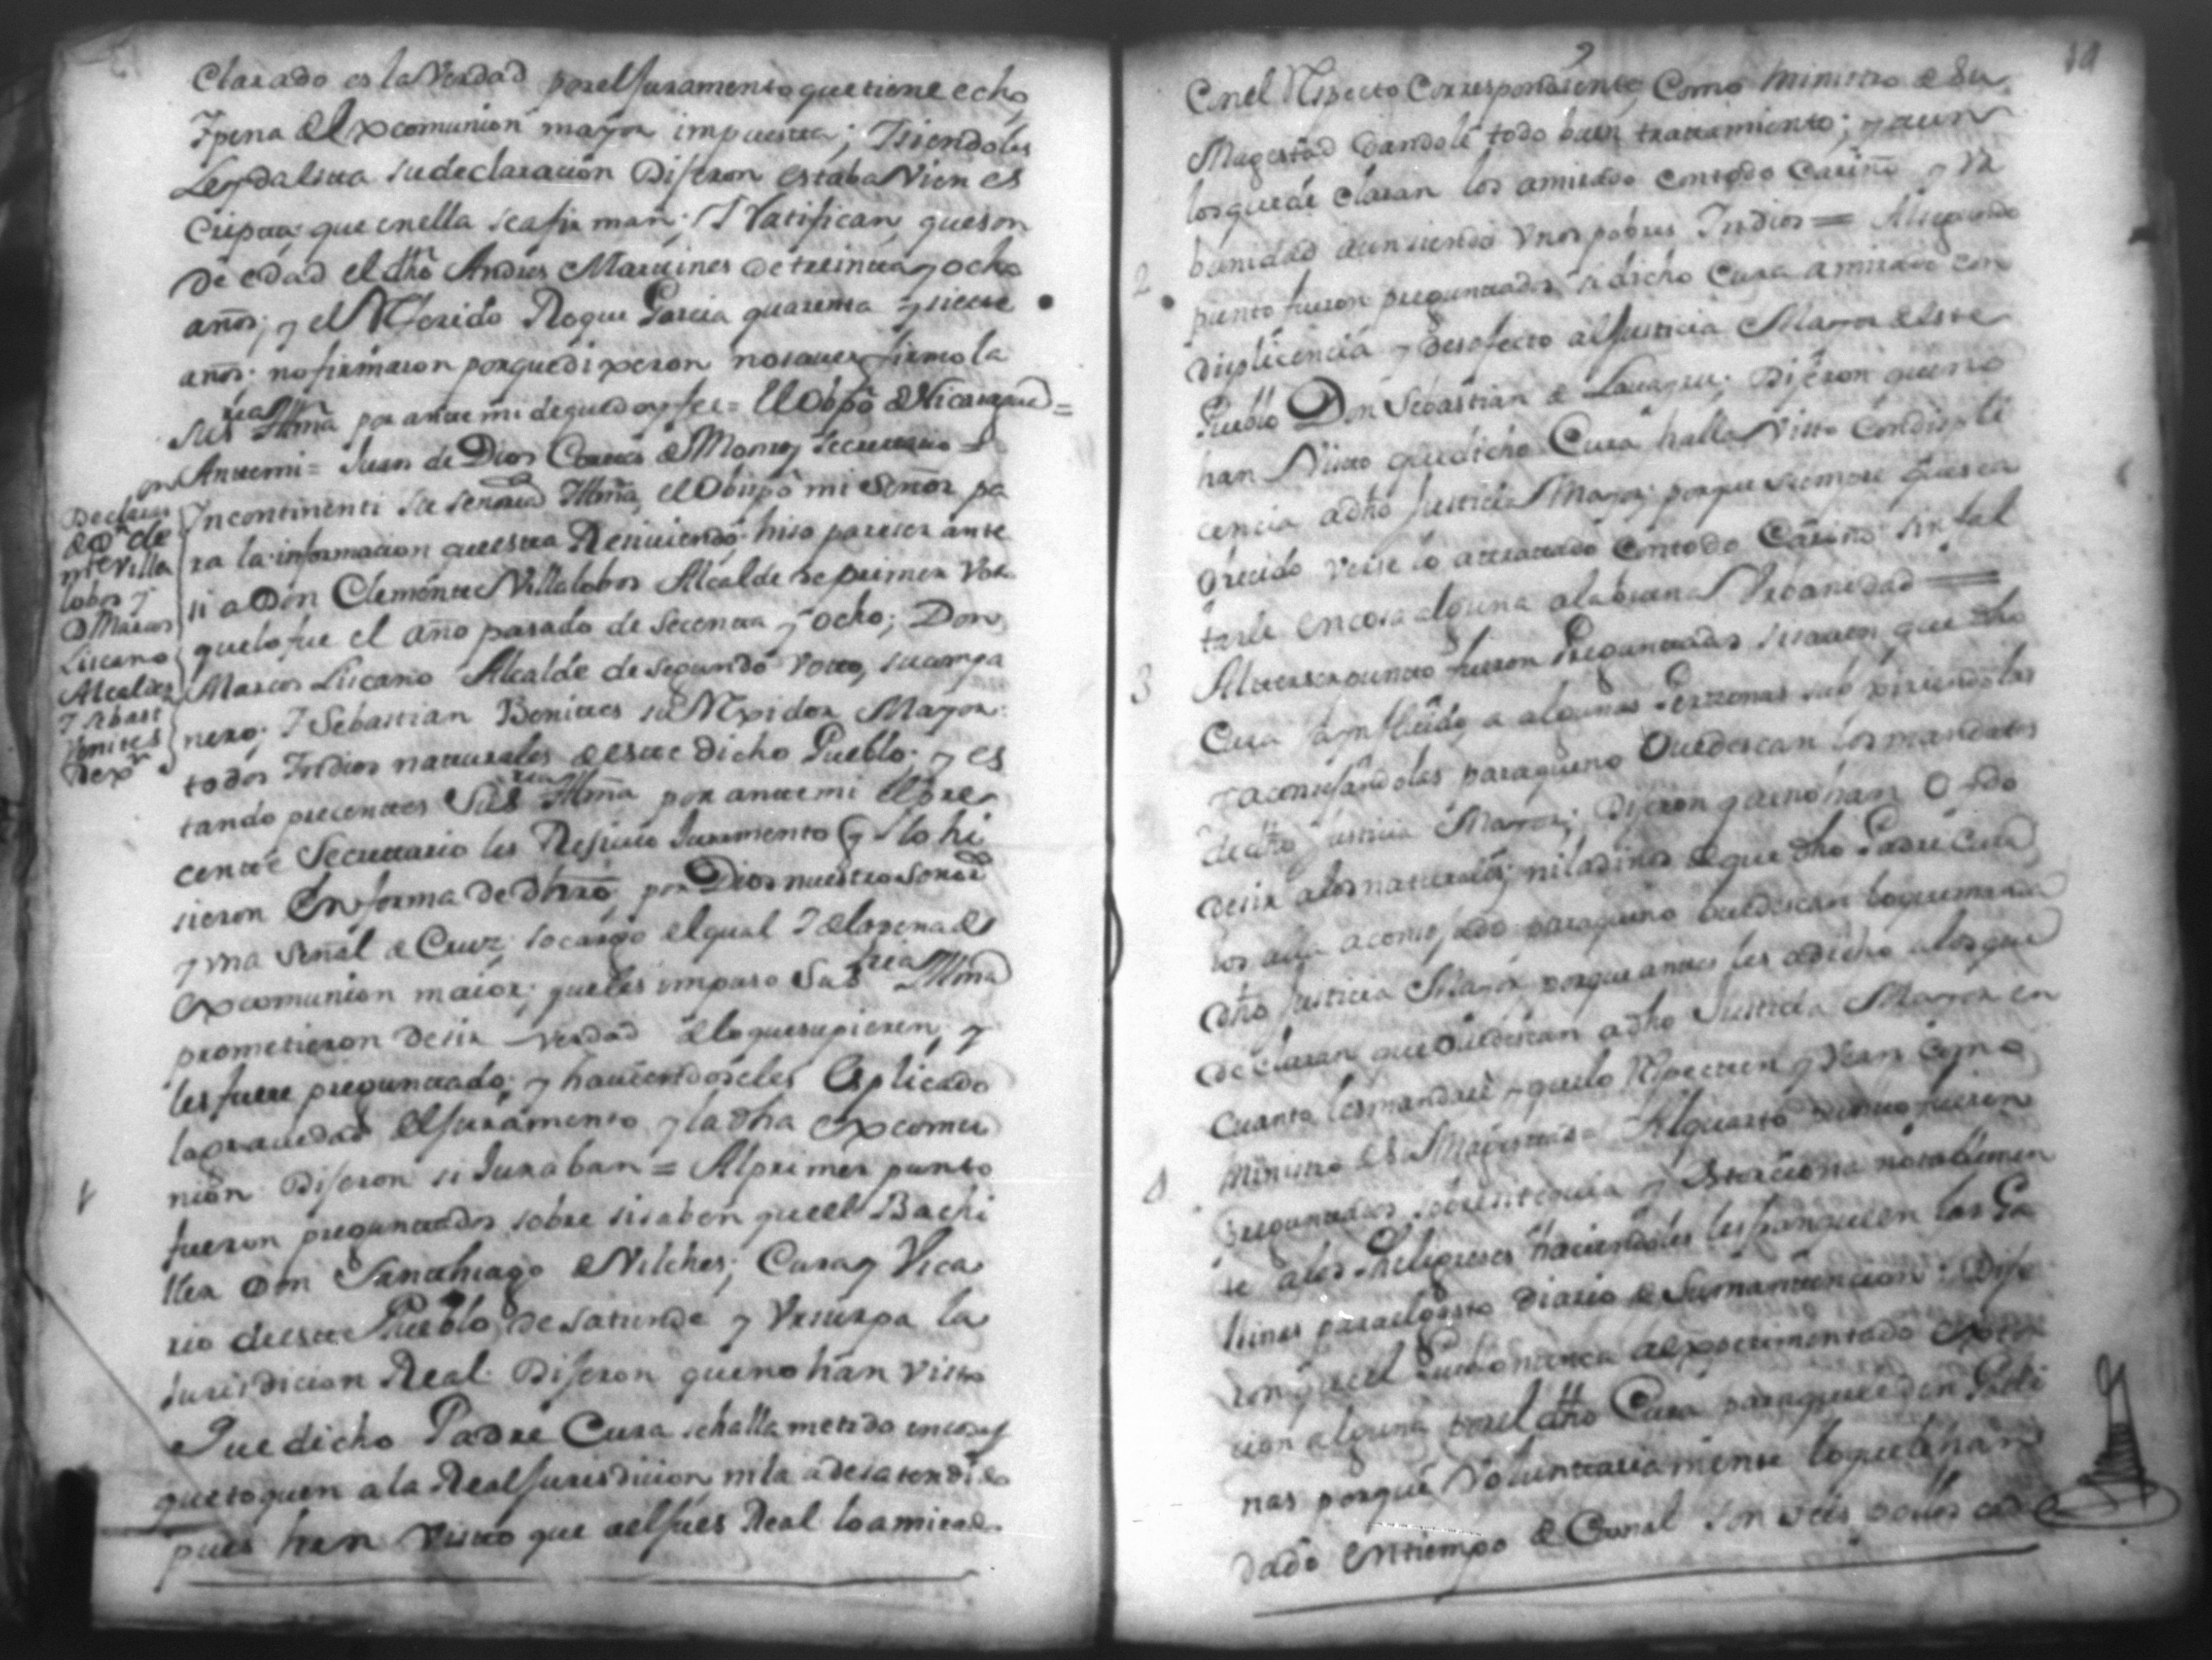 Clarado es la Verdad por el Juramento que tiene echo,
Y pena de Excomunion mayor impuesta; Y siendoles
Leyda esta su declaracion Dijeron estaba Vien es
Cripta; que en ella se afirman; Y Ratifican, que son
de edad el dho Andres Martines de treinta y ocho
años; y el Referido Roque Garcia quarenta y siete
años: no firmaron porque dixeron no saver firmo la
Su Sria Illma por ante mi de que doy fee = El Obpo de Nicaragua =
Antemi = Juan de Dios Cortes Secretario =
Declaron
de Dn Cle
mte Villa
lobos y
D Marcos
Liscano
Alcaldes
Y Sebast
Venites
Rexor
Yncontinenti Su Señoria Illma, el Obispo mi Señor pa
ra la informacion que esta Resiviendo hiso pareser ante
si a Don Clemente Villalobos Alcalde de primer Voto
que lo fue el año pasado de secenta y ocho; Don
Marcos Liscano Alcalde de segundo Voto, su compa
nero; Y Sebastian Benites su Rexidor Mayor:
todos Yndios naturales de este dicho Pueblo; y es
tando precentes Su Sria Illma por ante mi el pre
cente Secretario les Resivio Juramento q lo hi
sieron En forma de dro, por Dios nuestro Señor
y una Señal de Cruz; so cargo el qual Y de la pena de
Excomunion maior; que les impuso Su Sria Illma
prometieron desir verdad de lo que supieren, y
les fuere preguntado; y haviendoseles Esplicado
la gravedad del Juramento y la dha Excomu
nion Dijeron si Juraban = Al primer punto
1
fueron preguntados sobre si saben que el Bachi
ller Don Santhiago de Vilches; Cura y Vica
rio de este Pueblo, desatiende y Vsurpa la
Jurisdicion Real: Dijeron que no han visto
Que dicho Padre Cura se halla metido en cosas
que toquen a la Real Jurisdicion, ni la a desatendido
pues han visto que al Jues Real lo a mirado
Con el Respecto Correspondiente, Como ministro de Su
Magestad dandole todo buen tratamiento; y aun
los que declaran los a mirado con todo Cariño y Vr
banidad aun siendo Vnos pobres Yndios = Al segundo
2
punto fueron preguntados, si dicho Cura a mirado con
displicencia y desafecto al Justicia Mayor de este
Pueblo Don Sebastian de; Dijeron que no
han Visto que dicho Cura halla Visto con displi
cencia a dho Justicia Mayor; porque siempre que sea
ofrecido verse lo a tratado con todo Cariño sin fal
tarle en cosa alguna a la buena Vrbanidad =
3
Al terser punto fueron Preguntados si saven que dho
Cura a ynfluido a algunas Personas
y aconsejandolas para que no Ovedescan los mandatos
de dho Justicia Mayor; Dijeron que no han Oydo
desir a los naturales; ni ladinos de que dho Padre Cura
los aiga aconsejado para que no ovedescan lo que manda
dho Justicia Mayor porque antes les a dicho a los que
declaran que Ovedescan a dho Justicia Mayor en
Cuanto les mandare y que lo Respecten y Vean Como
ministro de Su Magestad = Al quarto punto fueron
4
Preguntados sobre si y Estorciona notablemen
te a los Feligreses haciendoles les franqueen las Ga
llinas para el gasto Diario de Su manutencion: Dije
ron que el Pueblo nunca a experimentado Extor
cion alguna por el dho Cura para que le den Galli
nas porque Voluntariamente lo que le han
dado En tiempo de Carnal son seis pollos cada